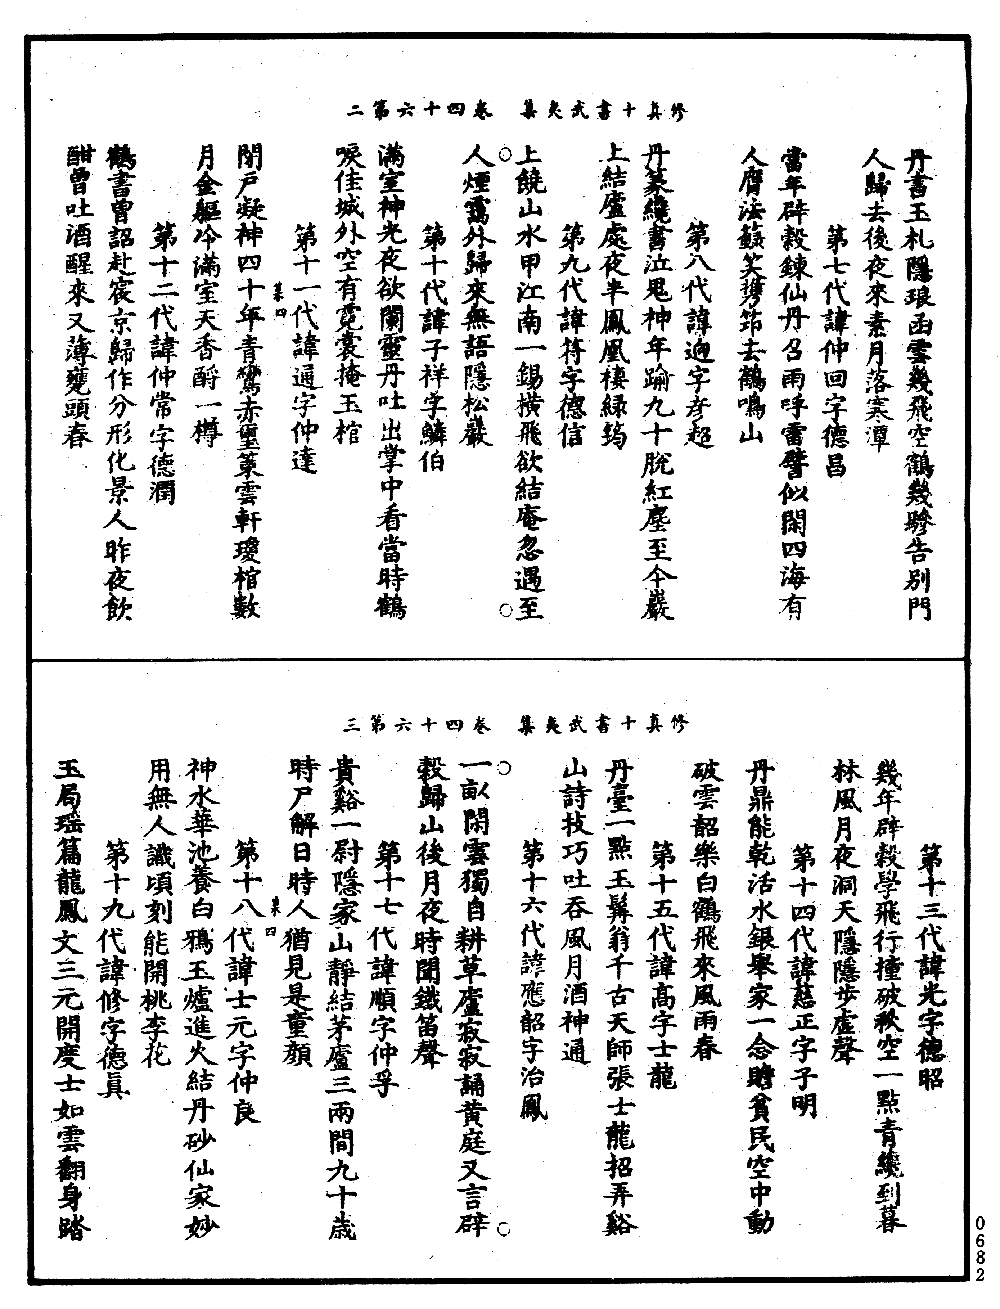 修真十書武夷集　卷四十六第二
丹書玉札隱琅函雲幾飛空鶴幾驂告別門
人歸去後夜來素月落寒潭
第七代諱仲回字德昌
當年辟穀鍊仙丹召雨呼雷譬似閑四海有
人膺法籙笑攜筇去鶴鳴山
第八代諱迥字彥超
丹篆纔書泣鬼神年踰九十脫紅塵至今巖
上結廬處夜半鳳凰棲綠筠
第九代諱符字德信
上饒山水甲江南一錫橫飛欲結庵忽遇至
人煙靄外歸來無語隱松巖
第十代諱子祥字麟伯
滿室神光夜欲闌靈丹吐出掌中看當時鶴
唳佳城外空有霓裳掩玉棺
第十一代諱通字仲達
閉戶凝神四十年青鸞赤璽策雲軒瓊棺數
月金軀冷滿室天香酹一樽
第十二代諱仲常字德潤
鶴書曾詔赴宸京歸作分形化景人昨夜飲
酣曾吐酒醒來又薄甕頭春
菓四
修真十書武夷集　卷四十六第三
第十三代諱光字德昭
幾年辟穀學飛行撞破秋空一點青纔到暮
林風月夜洞天隱隱步虛聲
第十四代諱慈正字子明
丹鼎能乾活水銀舉家一念贍貧民空中動
破雲韶樂白鶴飛來風雨春
第十五代諱高字士龍
丹臺一點玉髯翁千古天師張士龍招弄谿
山詩技巧吐吞風月酒神通
第十六代諱應韶字治鳳
一畝閑雲獨自耕草廬寂寂誦黃庭又言辟
穀歸山後月夜時聞鐵笛聲
第十七代諱順字仲孚
貴谿一尉隱家山靜結茅廬三兩間九十歲
時尸解日時人猶見是童顏
第十八代諱士元字仲良
神水華池養白鴉玉爐進火結丹砂仙家妙
用無人識頃刻能開桃李花
第十九代諱修字德真
玉局瑤篇龍鳳文三元開度士如雲翻身踏
菓四
0682